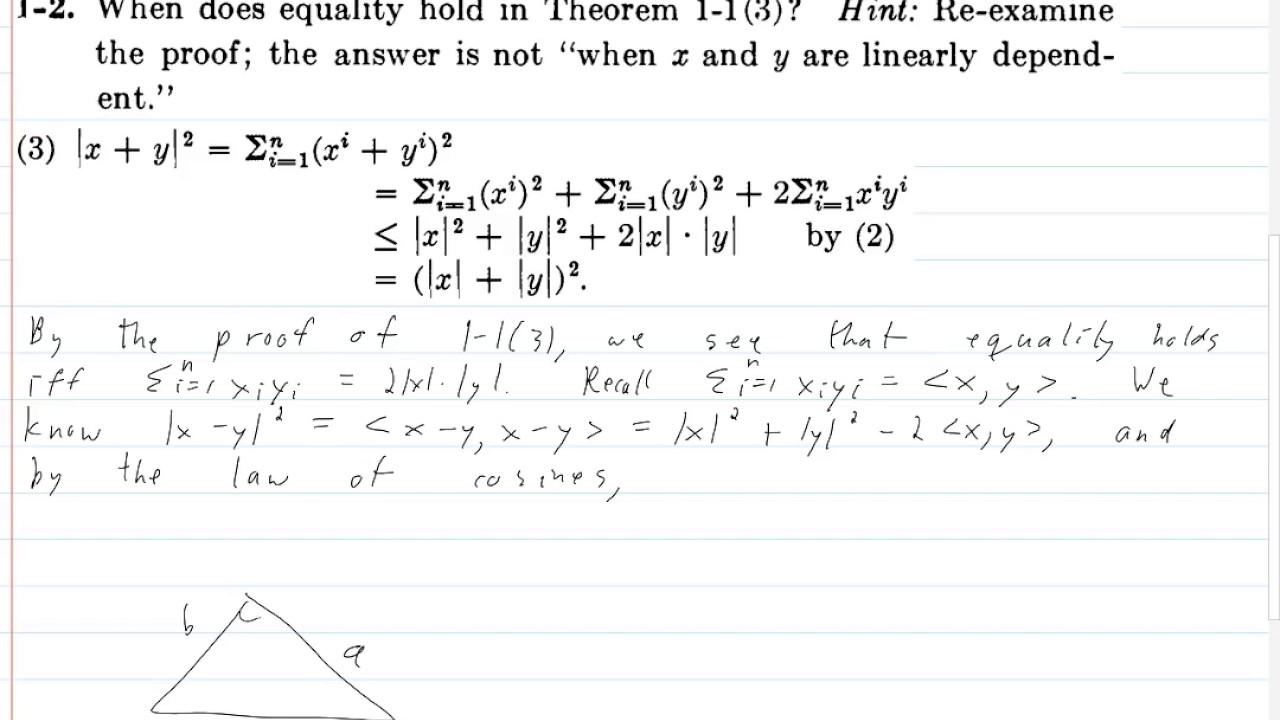 1-2. When does equality hold in Theorem 1-1(3)? Hint: Re-examine
the proof; the answer is not “when x and y are linearly depend-
ent.”
(3) |x + y|² = Σⁿᵢ₌₁(xⁱ + yⁱ)²
= Σⁿᵢ₌₁(xⁱ)² + Σⁿᵢ₌₁(yⁱ)² + 2Σⁿᵢ₌₁xⁱyⁱ
≤ |x|² + |y|² + 2|x| · |y| by (2)
= (|x| + |y|)².
By the proof of 1-1(3), we see that equality holds
iff Σⁿᵢ₌₁ xᵢyᵢ = 2|x|·|y|. Recall Σⁿᵢ₌₁ xᵢyᵢ = <x, y>. We
know |x - y|² = <x - y, x - y> = |x|² + |y|² - 2 <x, y>, and
by the law of cosines,
b
a